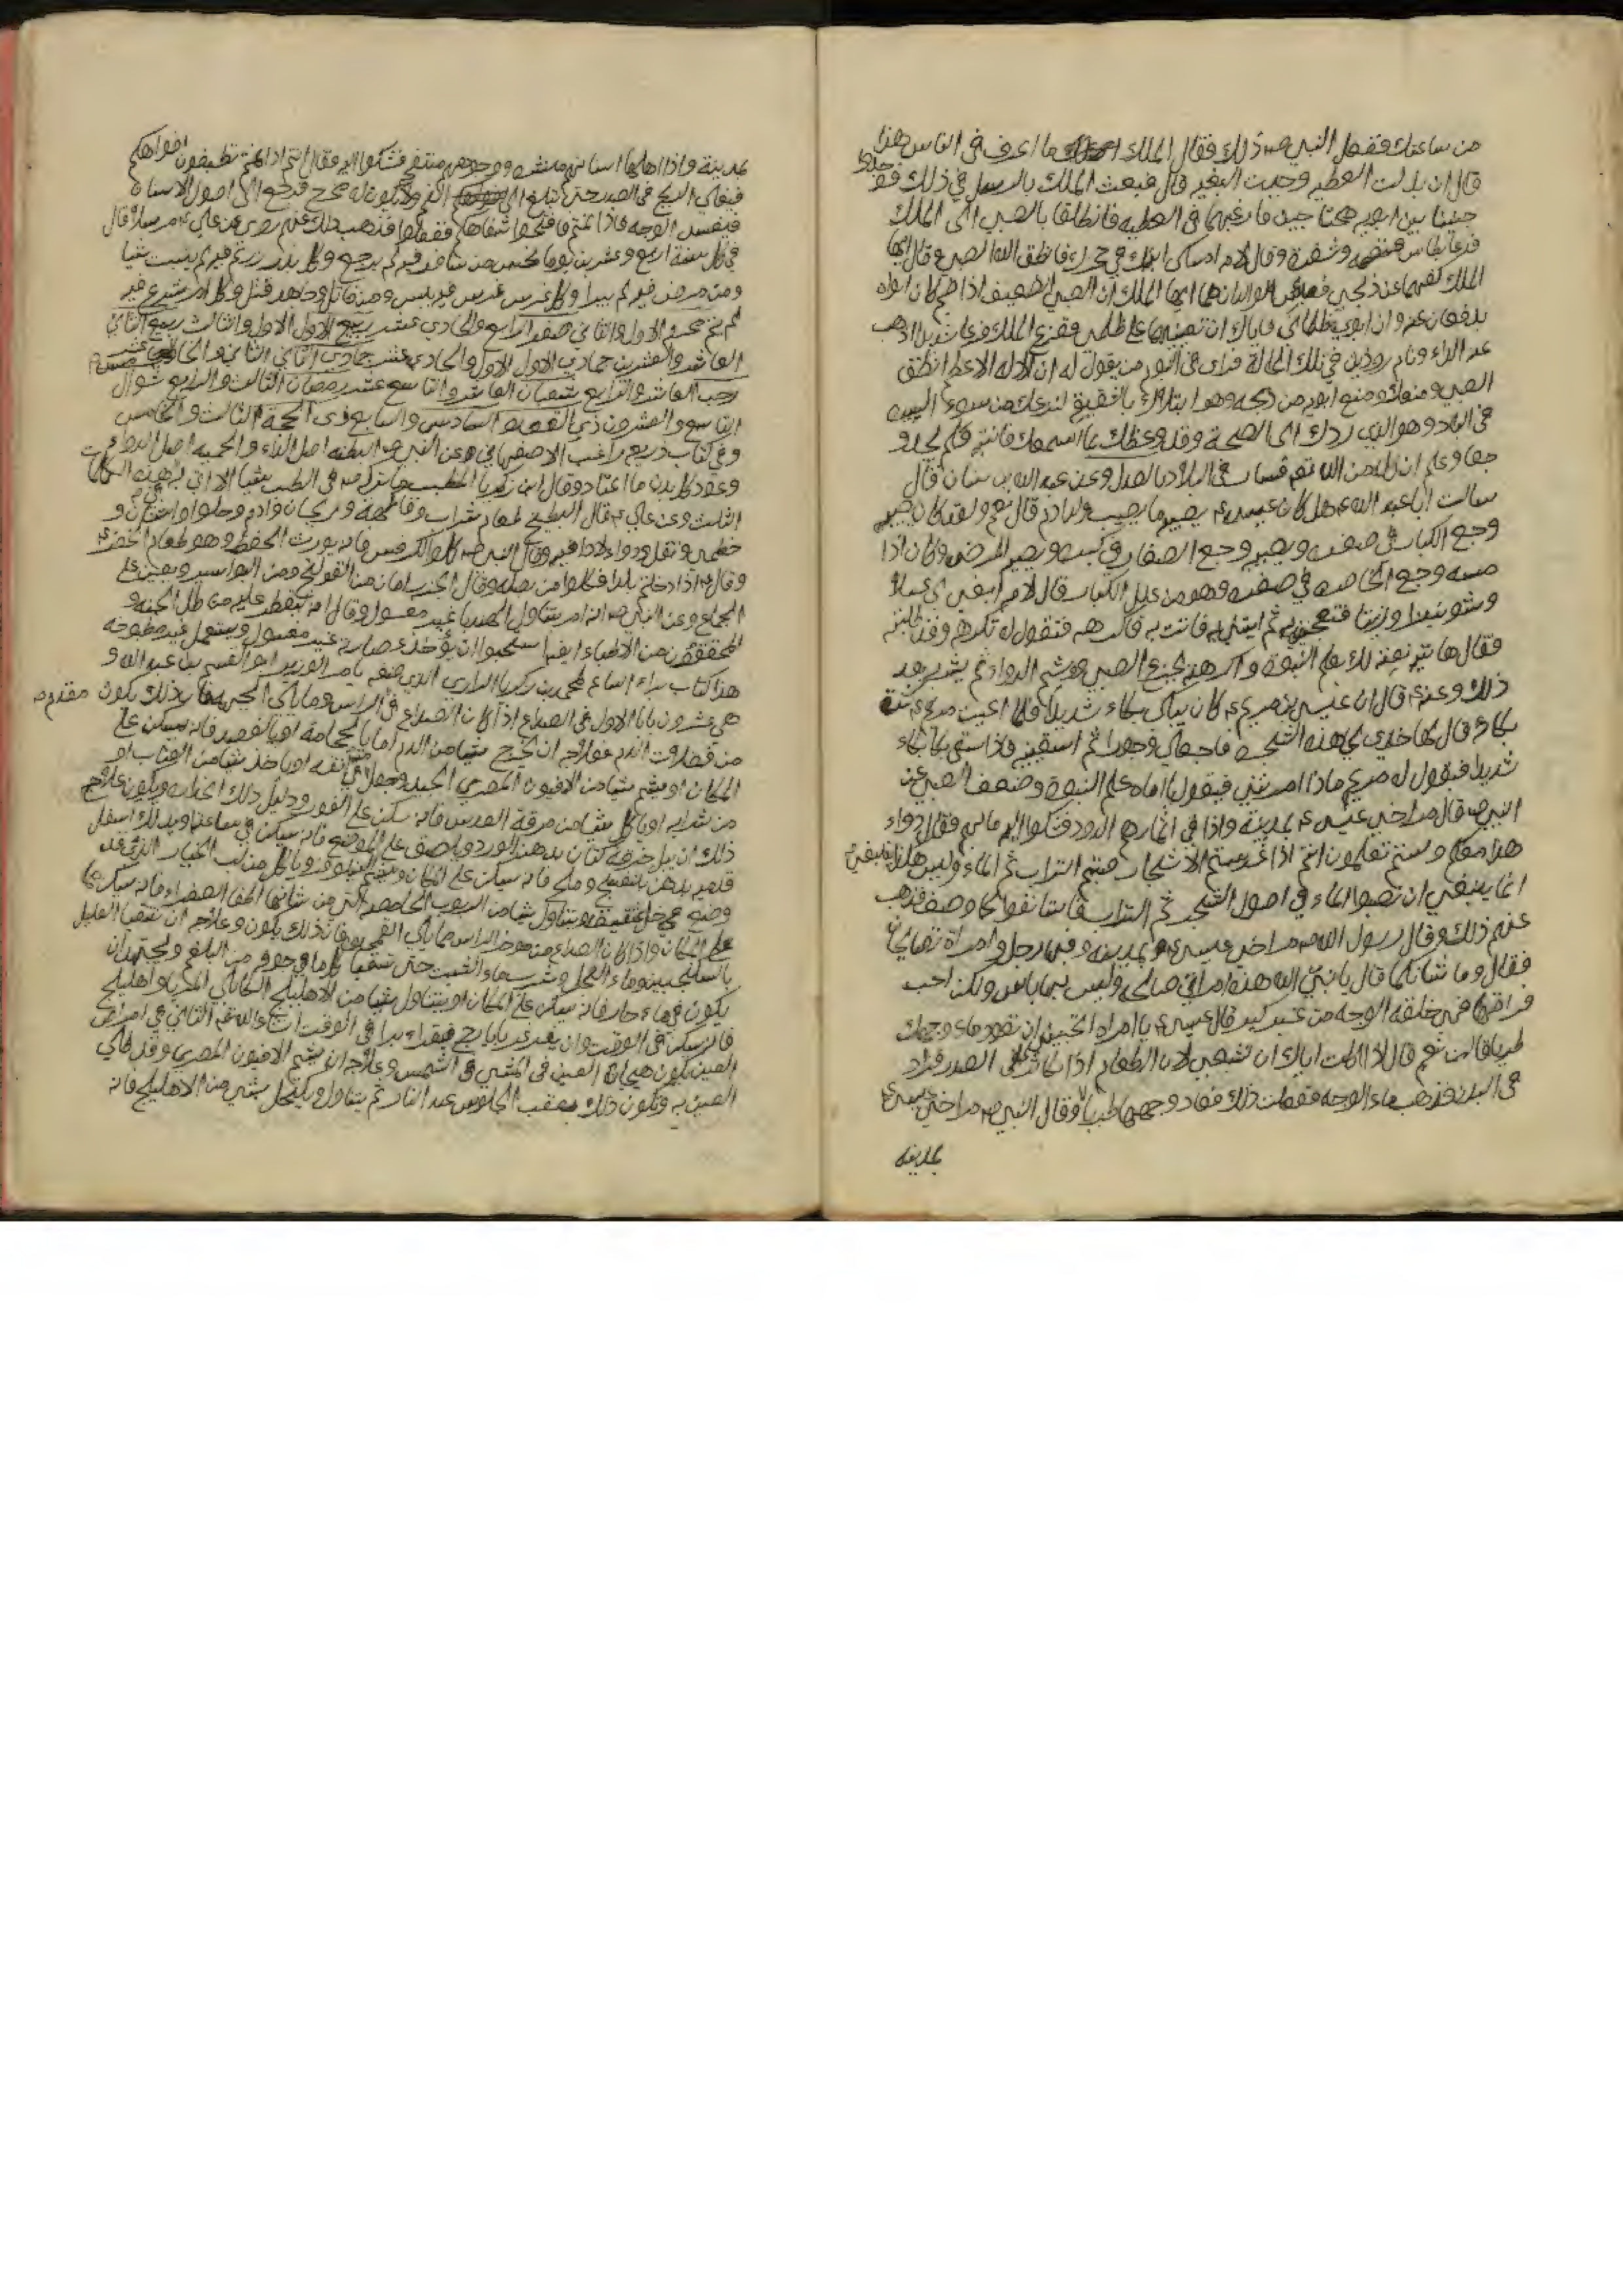 من ساعتك ففعل النبي ص ذلك فقال الملك ما اعرف في الناس هذا
قال ان بذلت العطيه وجدت البغيه قال فبعث الملك بالرسل في ذلك فوجدوا
جنينا بين ابويه محتاجين فارغبهما في العطيه فانطلقا بالصبي الى الملك
فدعا بطاس فضه وشفرة وقال لامه امسكي ابنك في حجرك فانطق الله الصبي وقال ايها
الملك كفهما عن ذبحي فبئس الوالدان هما ايها الملك ان الصبي الضعيف اذا ضيم كان ابواه
يدفعان عنه وان ابوي ظلماني فاياك ان تعينهما على ظلمي ففزع الملك فزعا شديدا اذهب
عنه الداء ونام في تلك الحالة فراى في النوم من يقول له ان الاله الاعظم انطق
الصبي ومنعك ومنع ابويه من ذبحه وهو ابتلاك لنزعك من سوء السيره
في البلاد وهو الذي ردك الى الصحة وقد وعظك بما اسمعك فانتبه فلم يجد
وجعا وعلم ان ذلك من الله تعم فسار في البلاد بالعدل وعن عبد الله بن سنان قال
سالت ابا عبد الله ع هل كان عيسى ع يصيبه ما يصيب ولد ادم قال نعم ولقد كان يصيبه
وجع الكبار في صغره ويصيبه وجع الصغار في كبره ويصيبه المرض وكان اذا
مسه وجع الخاصره في صغره وهو من علل الكبار قال لامه ابغي لي عسلا
وشونيزا وزيتا فتعجنيه ثم ايتني به فاتت به فاكرهه فتقول له تكرهه وقد طلبته
فقال هاتيه نعته لك بعلم النبوة واكرهته لجزع الصبي ويشم الدواء ثم يشربه بعد
ذلك وعنه ع قال ان عيسى بن مريم ع كان يبكي بكاء شديدا فلما اعيت مريم ع كثرة
بكائه قال لها خذي لي هذه الشجره فاجعلي وجورا ثم اسقينيه فاذا سقي بكى بكاء
شديدا فيقول له مريم ماذا امرتني فيقول يا اماه علم النبوة وضعف الصبي عن
النبي ص قال مر اخي عيسى ع بمدينة واذا في اثمارها الدود فشكوا اليه ما بهم فقال دواء
هذا معكم ولستم تعلمون انتم اذا غرستم الاشجار صبتم التراب ثم الماء وليس هكذا ينبغي
انما ينبغي ان تصبوا الماء في اصول الشجر ثم التراب فاستانفوا كما وصف فذهب
عنهم ذلك وقال رسول الله ص مر اخي عيسى ع بمدينه وفيها رجل وامراة تصايحان
فقال وما شانكما قال يا نبي الله هذه امراتي صالحه وليس بها باس ولكن احب
فراقها فهي خلقة الوجه من غير كبر قال عيسى ع يا امراة اتحبين ان يعود ماء وجهك
طريا قالت نعم قال اذا اكلت اياك ان تشبعي لان الطعام اذا تكاثر على الصدر فزاد
في البدن فذهب ماء الوجه ففعلت ذلك فعاد وجهها طريا وقال النبي ص مر اخي عيسى ع
بمدينه
بمدينة واذا اهلها اسنانهم منتشره ووجوههم منتفخه فشكوا اليه فقال انتم اذا نمتم تطبقون افواهكم
فيغلي الريح في الصدر حتى تبلغ الى الفم ولا يكون له مخرج فترجع الى اصول الاسنان
فيفسد الوجه فاذا نمتم فافتحوا شفاهكم ففعلوا فذهب ذلك عنهم روي عن علي ع مرسلا قال
في كل سنة اربع وعشرين يوما نحس من سافر فيه لم يرجع وكل بذر زرعتم فيه لم ينبت شيا
ومن مرض فيه لم يبرا وكل غرس غرس فيه يبس ومن قاتل وجاهد قتل وكل امر شرع فيه
لم يتم محرم الاول والثاني صفر الرابع والحادي عشر ربيع الاول الاول والثالث ربيع الثاني
العاشر والعشرين جمادي الاول الاول والحادي عشر جمادي الثاني الثاني والحادي عشر
رجب العاشر والرابع شعبان العاشر والتاسع عشر رمضان الثالث والرابع شوال
التاسع والعشرون ذي القعده السادس والسابع ذي الحجة الثالث والخامس
وفي كتاب ذريعه راغب الاصفهاني عن النبي ص البطنه اصل الداء والحميه اصل الدواء
وعود كل بدن ما اعتاد وقال ابن زكريا المطبب ما ترك ص في الطب شيا الا اتى بهذه الكلمات
الثلث وعن علي ع قال البطيخ طعام شراب وفاكهة وريحان وادم وحلوا واشنان و
خطمي وبقل ودواء لا داء فيه وقال النبي ص كلوا الكرفس فانه يورث الحفظ وهو طعام الخضر ع
وقال ع اذا دخلتم بلدا فكلوا من بصله وقال الجبن امان من القولنج ومن البواسير ويعين على
الجماع وعن النبي ص انه امر بتناول الهندبا غير مغسول وقال انه يقطر عليه من طل الجنه و
المحققون من الاطباء ايضا استحبوا ان يؤخذ عصاره غير مغسول ويستعمل غير مطبوخه
هذا كتاب براء الساعه لمحمد بن زكريا الرازي الذي صنفه بامر الوزير ابو القسم بن عبد الله و
هي عشرون بابا الاول في الصداع اذا كان الصداع في الراس وما يلي الجبهه فان ذلك يكون مقدم
من فضلات الدم فعلاجه ان يخرج شيا من الدم اما بالحجامة او بالفصد فانه يسكن على
المكان او يشم شيا من الافيون المصري الجيد ويجعل في انفه او ياخذ شيا من العناب او
من شرابه او ياكل شيا من مرقة العدس فانه يسكن على الفور ودليل ذلك ويكون علاج
ذلك ان يبل خرقة كتان بدهن الورد ويلصق على الموضع فانه يسكن في ساعته او يدلك اسفل
قدميه بدهن بنفسج وملح فانه يسكن على المكان ويشم النيلوفر وياكل من لب الخيار الذي قد
وضع في خل ثقيف او يتناول شيا من الربوب الحامضه التي من شانها اطفا الصفراء فانه يسكن
على المكان واذا كان الصداع من موخر الراس مما يلي القمحدوه فان ذلك يكون وعلاجه ان يتقيا العليل
بالسكنجبين وماء الفجل وشرب ماء الشبت حتى يتقيا كل ما في جوفه من البلغم ويجتهد ان
يكون في ماء حار فانه يسكن على المكان او يتناول شيا من الاهليلج الكابلي المربا او اهليلج
فانه يسكن في الوقت وان يغرغر بايارج فيقراء يبرا في الوقت انشاء الله تعم الثاني في امراض
العين يكون هيجان العين في المشي في الشمس وعلاجه ان يشم الافيون المصري وقد طلي
العين به ويكون ذلك بعقب الجلوس عند النار ثم يتناول ويكتحل بشي من الاهليلج فانه